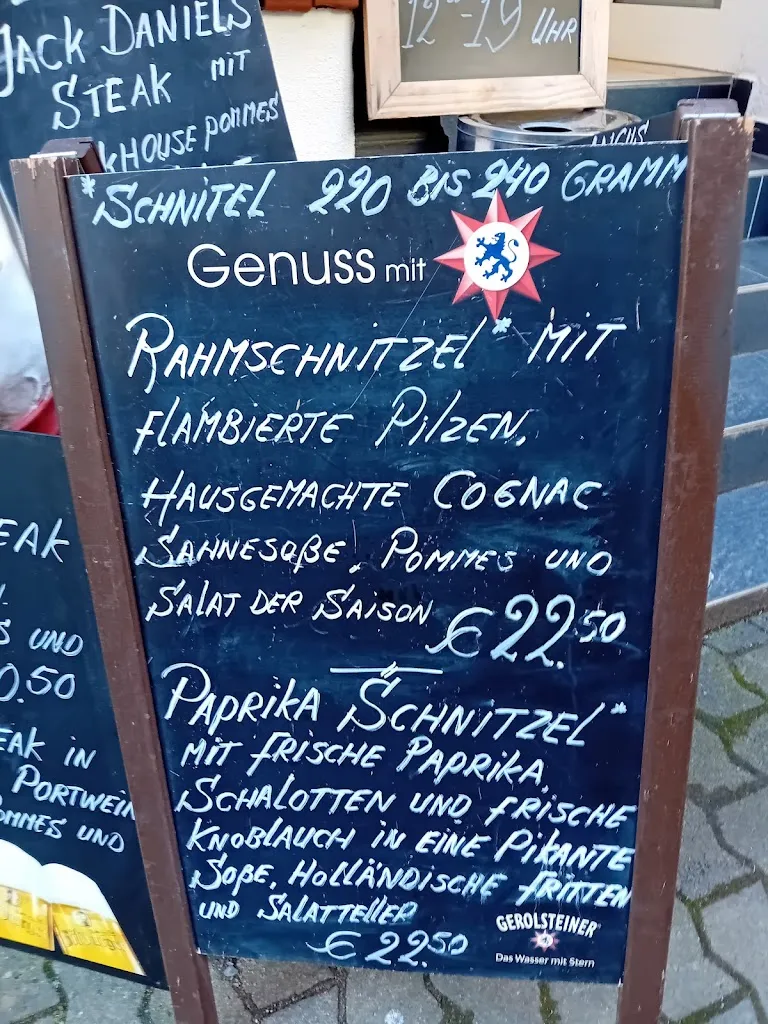 JACK DANIELS
STEAK MIT
POMMES
12 - 19 UHR
*SCHNITEL 220 BIS 240 GRAMM
Genuss mit
RAHMSCHNITZEL* MIT
FLAMBIERTE PILZEN,
HAUSGEMACHTE COGNAC
SAHNESOßE, POMMES UND
SALAT DER SAISON €22.50
PAPRIKA SCHNITZEL*
MIT FRISCHE PAPRIKA,
SCHALOTTEN UND FRISCHE
KNOBLAUCH IN EINE PIKANTE
SOßE, HOLLÄNDISCHE FRITTEN
UND SALATTELLER
€22.50
GEROLSTEINER
Das Wasser mit Stern
UND
0.50
IN
PORTWEIN
UND